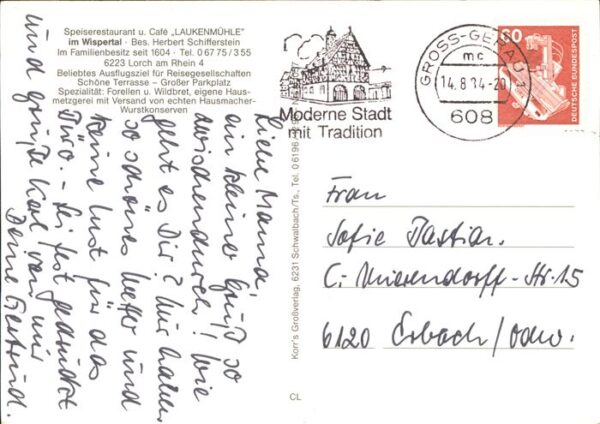 Speiserestaurant u. Café „LAUKENMÜHLE“
im Wispertal · Bes. Herbert Schifferstein
Im Familienbesitz seit 1604 · Tel. 0 67 75 / 3 55
6223 Lorch am Rhein 4
Beliebtes Ausflugsziel für Reisegesellschaften
Schöne Terrasse – Großer Parkplatz
Spezialität: Forellen u. Wildbret, eigene Haus-
metzgerei mit Versand von echten Hausmacher-
Wurstkonserven
Moderne Stadt
mit Tradition
GROSS-GERAU 1
mc
14.8.84-20
608
60
DEUTSCHE BUNDESPOST
Liebe Mama,
ein kleiner Gruß so
zwischendurch! Wie
geht es Dir? Wir haben
so schönes Wetter und
keine Lust für das
Büro. - Sei fest gedrückt
und grüße Karl von mir
Deine Gertrud.
Korr's Großverlag, 6231 Schwalbach/Ts., Tel. 0 6196
CL
Frau
Sofie Bastian.
C. Mierendorff-Str. 15
6120 Erbach/Odw.